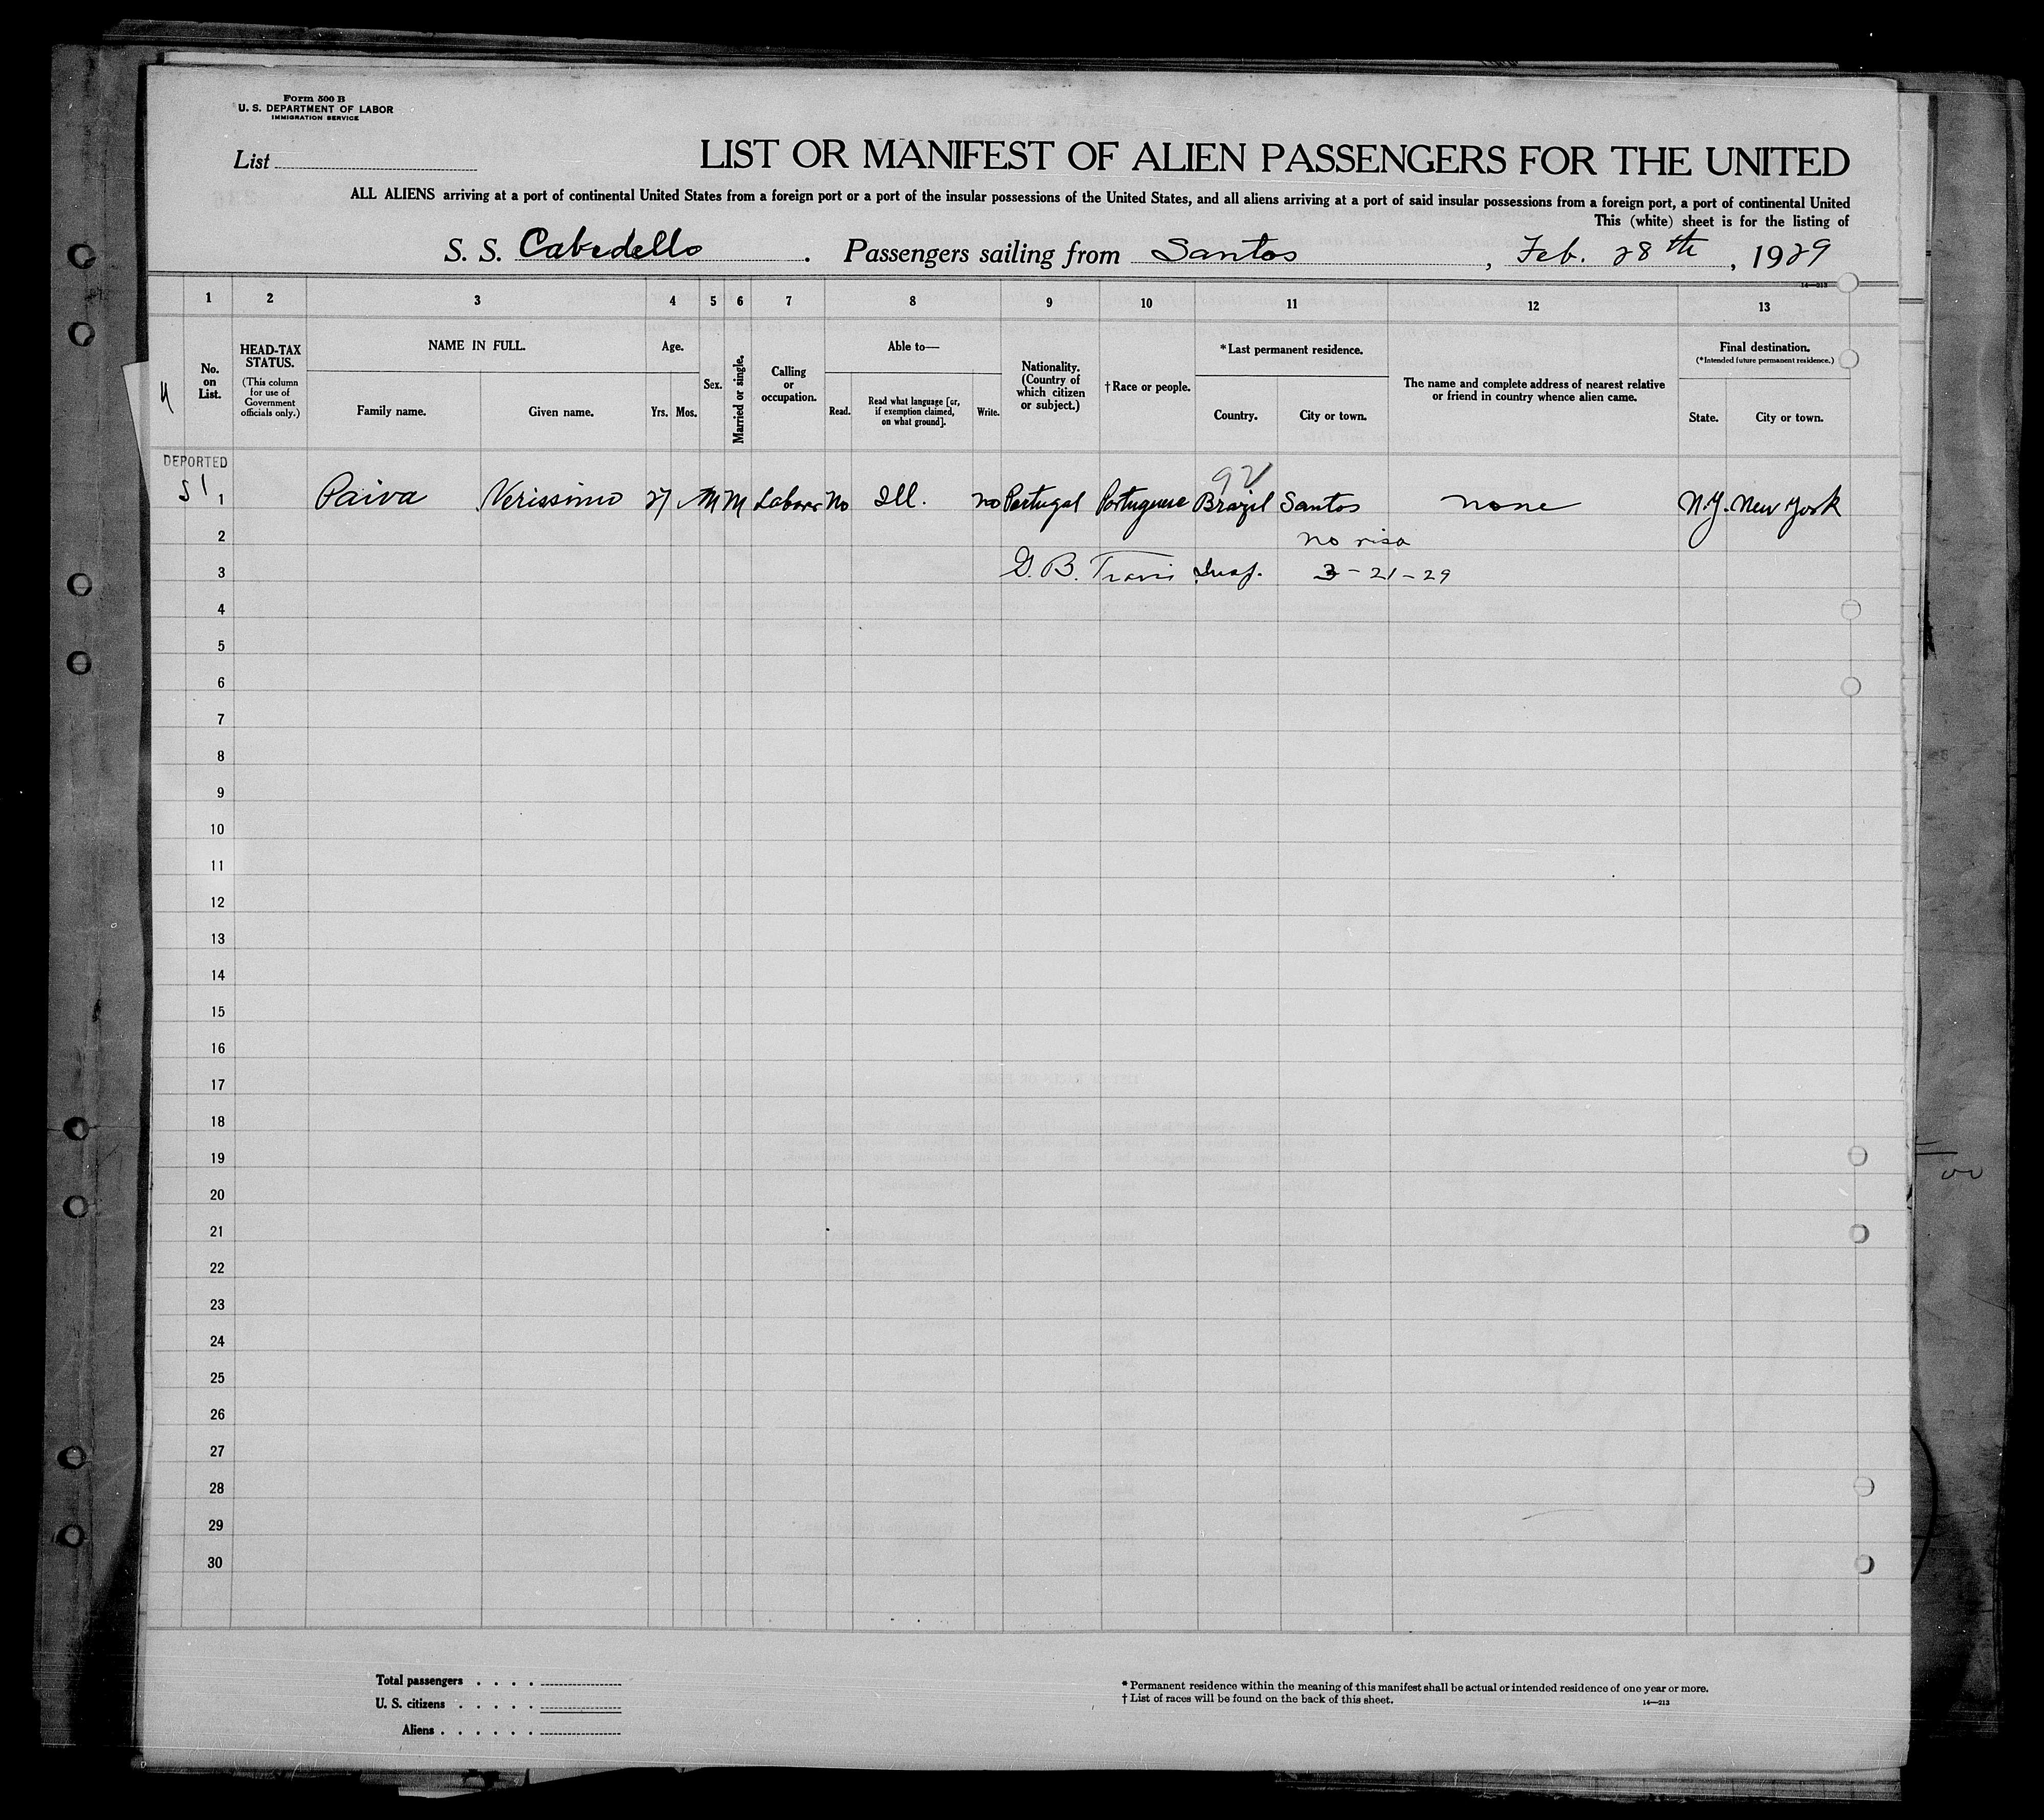 Form 500 B
U. S. DEPARTMENT OF LABOR
IMMIGRATION SERVICE
List
LIST OR MANIFEST OF ALIEN PASSENGERS FOR THE UNITED
ALL ALIENS arriving at a port of continental United States from a foreign port or a port of the insular possessions of the United States, and all aliens arriving at a port of said insular possessions from a foreign port, a port of continental United
This (white) sheet is for the listing of
S. S. Cabedello. Passengers sailing from Santos, Feb. 28th, 1929
14—213
1 2 3 4 5 6 7 8 9 10 11 12 13
No. on List.
HEAD-TAX STATUS.
(This column for use of Government officials only.)
NAME IN FULL.
Family name. Given name.
Age.
Yrs. Mos.
Sex.
Married or single.
Calling or occupation.
Able to—
Read. Read what language [or, if exemption claimed, on what ground]. Write.
Nationality. (Country of which citizen or subject.)
†Race or people.
*Last permanent residence.
Country. City or town.
The name and complete address of nearest relative or friend in country whence alien came.
Final destination.
(*Intended future permanent residence.)
State. City or town.
DEPORTED
92
1 Paiva Verissimo 27 M M Laborer No Ill. no Portugal Portuguese Brazil Santos none N.Y. New York
2 no visa
3 G. B. Travis Insp. 3-21-29
4
5
6
7
8
9
10
11
12
13
14
15
16
17
18
19
20
21
22
23
24
25
26
27
28
29
30
Total passengers . . . .
U. S. citizens . . . . .
Aliens . . . . . .
* Permanent residence within the meaning of this manifest shall be actual or intended residence of one year or more.
† List of races will be found on the back of this sheet. 14—213